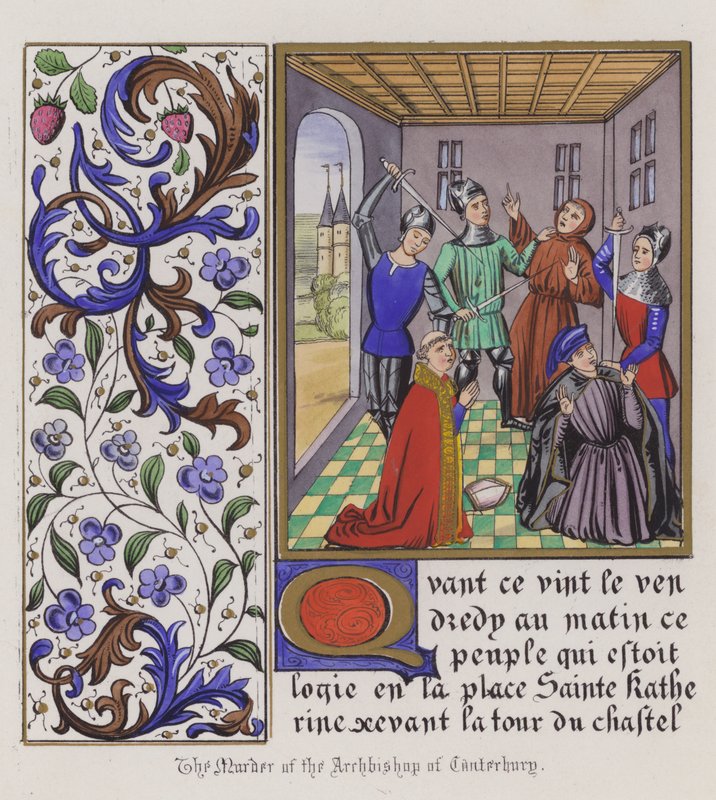 Qvant ce vint le ven
dredy au matin ce
peuple qui estoit
logie en la place Sainte Kathe
rine devant la tour du chastel
The Murder of the Archbishop of Canterbury.